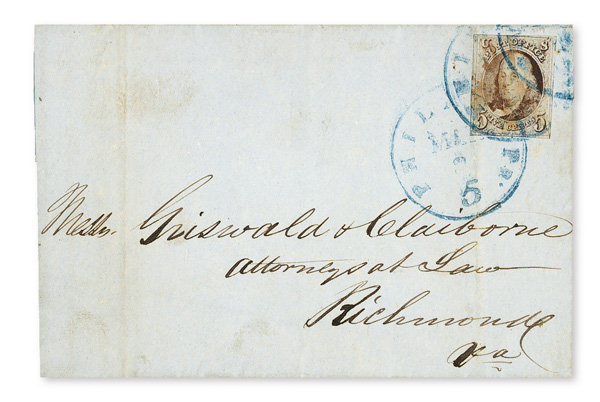 POST OFFICE
5 5
FIVE CENTS
PHIL
5
Messrs. Griswald & Claiborne
Attorneys at Law
Richmond
Va